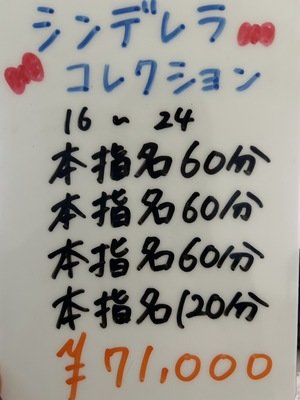 シンデレラ
コレクション
16〜24
本指名60分
本指名60分
本指名60分
本指名120分
¥71,000